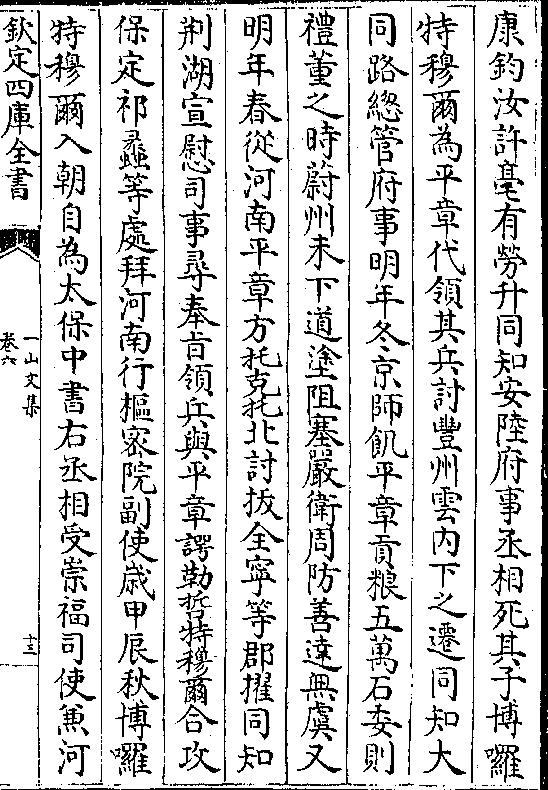 康鈞汝許亳有勞升同知安陸府事丞相死其子博囉
特穆爾為平章代領其兵討豐州雲内下之遷同知大
同路總管府事明年冬京師飢平章貢粮五萬石委則
禮董之時蔚州未下道塗阻塞嚴衛周防善達無虞又
明年春從河南平章方托克托北討拔全寧等郡擢同知
荆湖宣慰司事尋奉旨領兵與平章諤勒哲特穆爾合攻
保定祁蠡等處拜河南行樞宻院副使歲甲辰秋博囉
特穆爾入朝自為太保中書右丞相受崇福司使兼河
欽定四庫全書
一山文集
卷六
十三